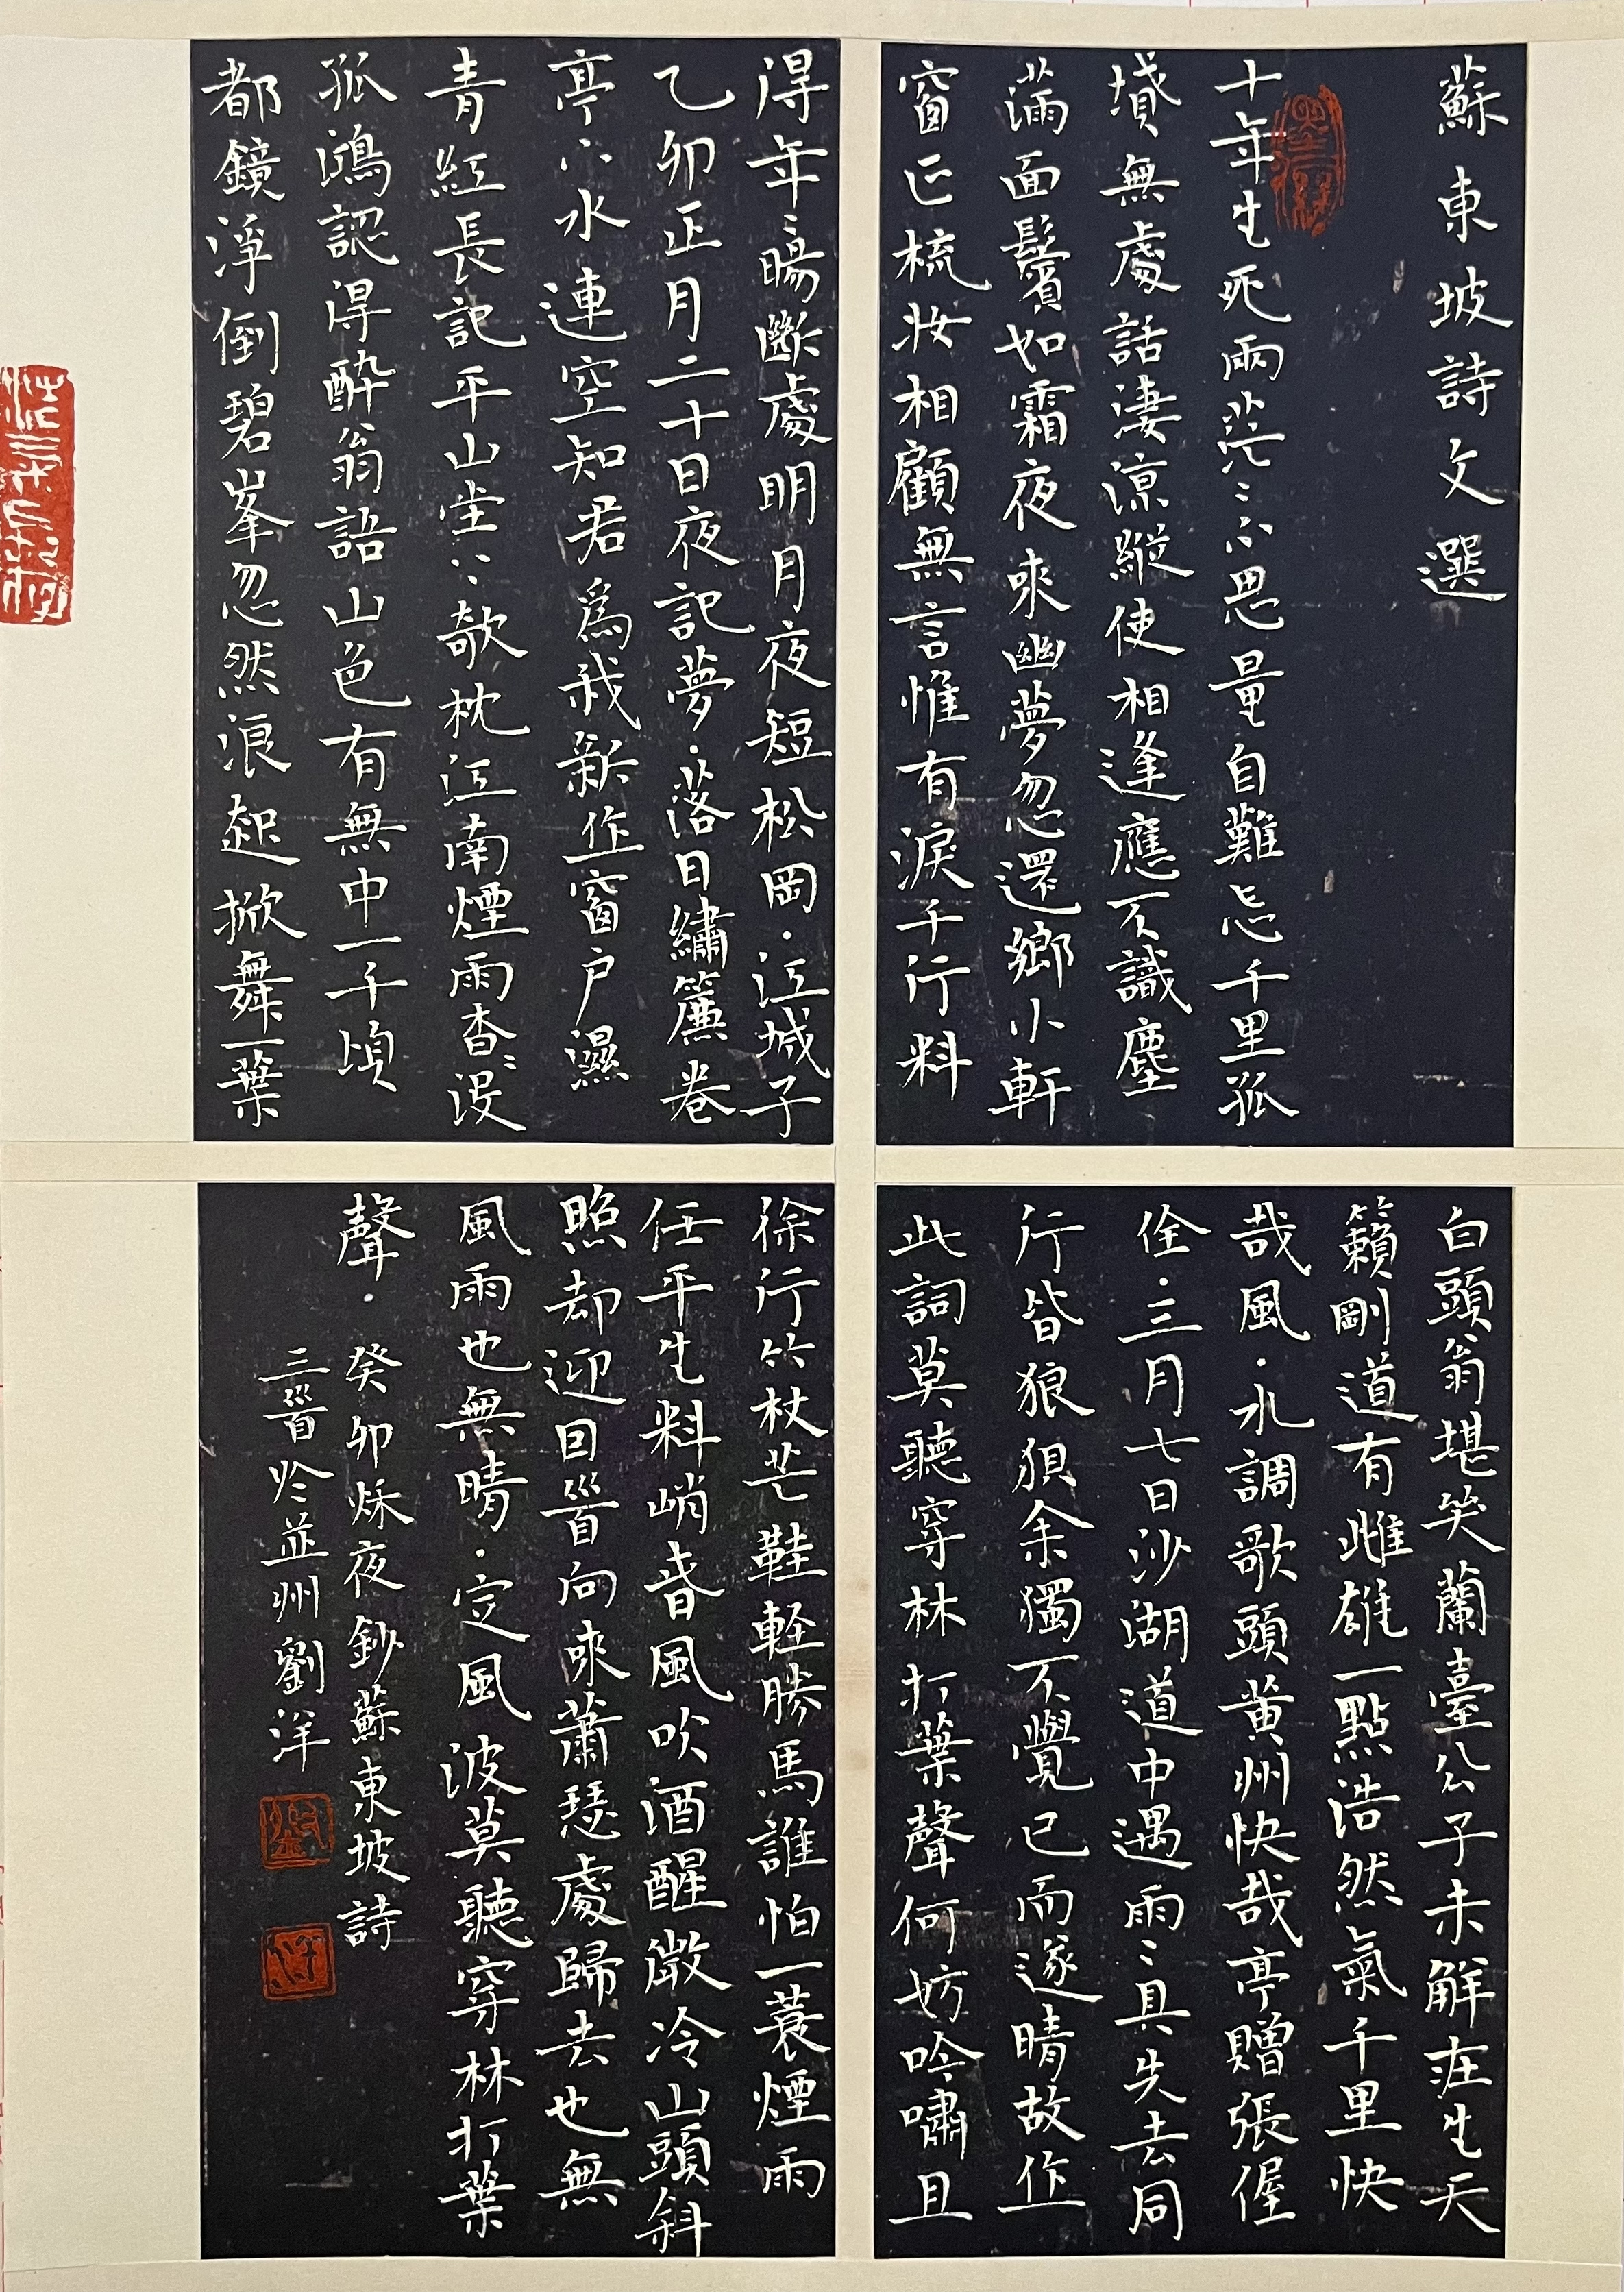 蘇東坡詩文選
十年生死兩茫〻不思量自難忘千里孤
墳無處話淒涼縱使相逢應不識塵
滿面鬢如霜夜來幽夢忽還鄉小軒
窗正梳妝相顧無言惟有淚千行料
得年〻腸斷處明月夜短松岡·江城子
乙卯正月二十日夜記夢·落日繡簾卷
亭下水連空知君為我新作窗戶濕
青紅長記平山堂上欹枕江南煙雨杳〻沒
孤鴻認得醉翁語山色有無中一千頃
都鏡淨倒碧峯忽然浪起掀舞一葉
白頭翁堪笑蘭臺公子未解莊生天
籟剛道有雌雄一點浩然氣千里快
哉風·水調歌頭黃州快哉亭贈張偓
佺·三月七日沙湖道中遇雨〻具先去同
行皆狼狽余獨不覺已而遂晴故作
此詞莫聽穿林打葉聲何妨吟嘯且
徐行竹杖芒鞋輕勝馬誰怕一蓑煙雨
任平生料峭春風吹酒醒微冷山頭斜
照却迎回首向來蕭瑟處歸去也無
風雨也無晴·定風波莫聽穿林打葉
聲·癸卯秌夜鈔蘇東坡詩
三首於並州劉洋